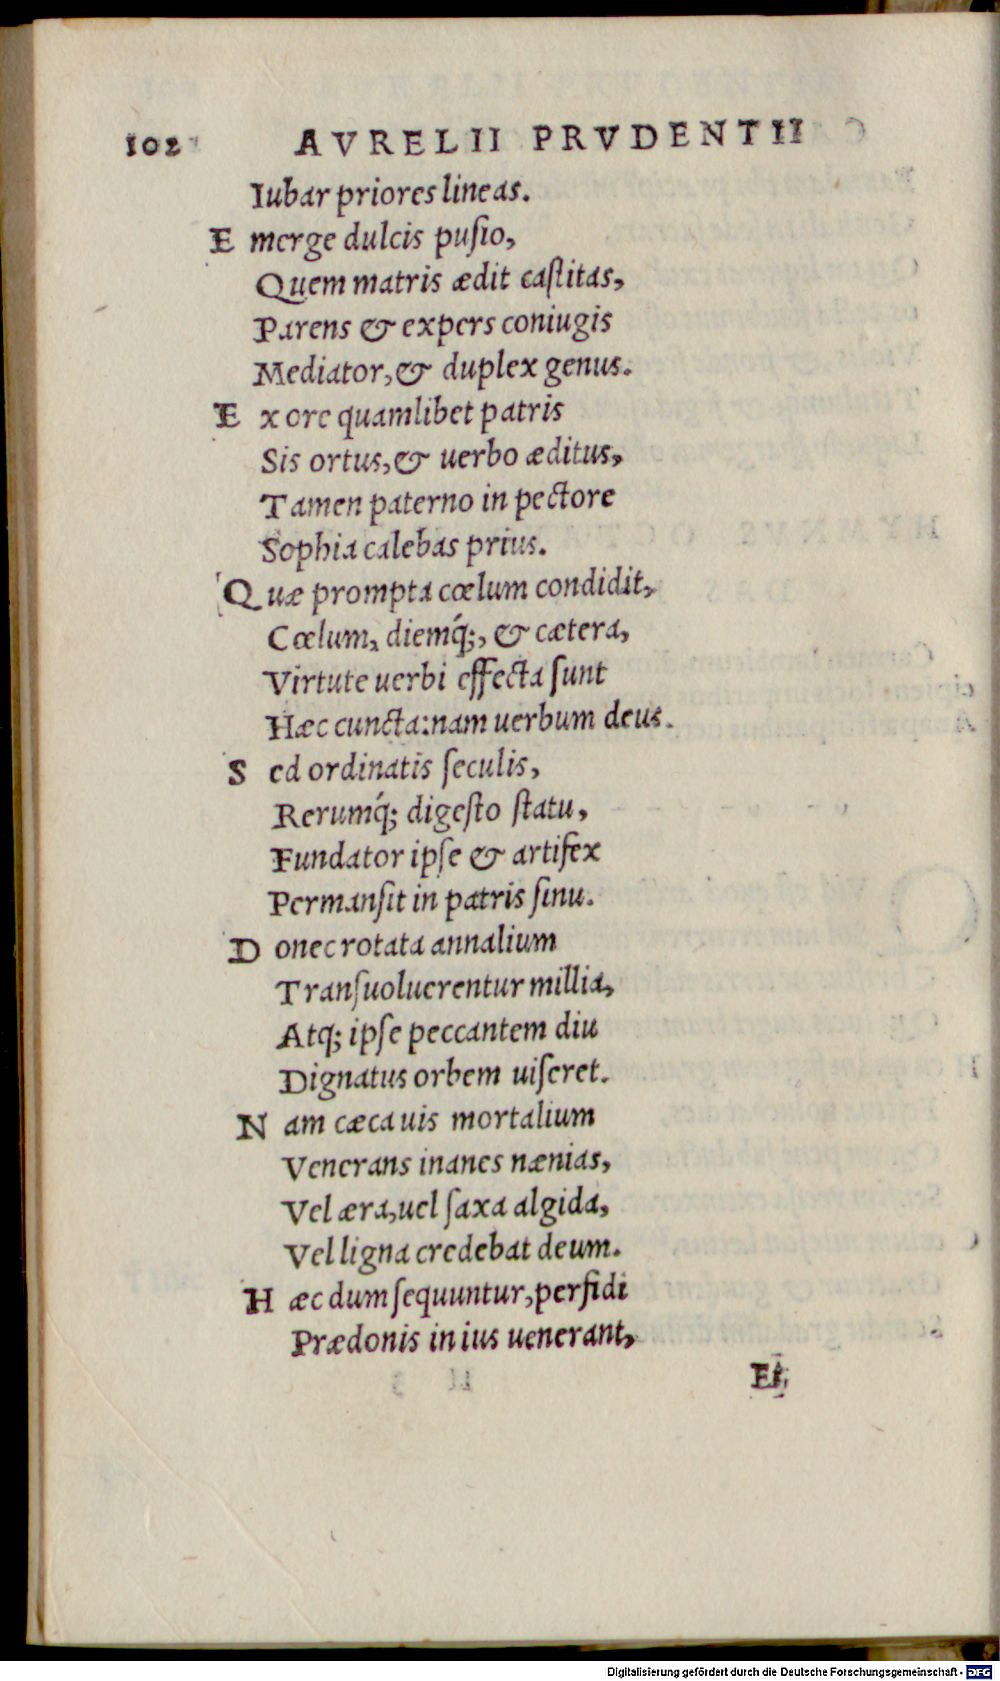 102 AVRELII PRVDENTII
Iubar priores lineas.
E merge dulcis pusio,
Quem matris ædit castitas,
Parens & expers coniugis
Mediator, & duplex genus.
E x ore quamlibet patris
Sis ortus, & uerbo æditus,
Tamen paterno in pectore
Sophia calebas prius.
Q uæ prompta cœlum condidit,
Cœlum, diemq́;, & cætera,
Virtute uerbi effecta sunt
Hæc cuncta: nam uerbum deus.
S ed ordinatis seculis,
Rerumq́; digesto statu,
Fundator ipse & artifex
Permansit in patris sinu.
D onec rotata annalium
Transuoluerentur millia,
Atq; ipse peccantem diu
Dignatus orbem uiseret.
N am cæca uis mortalium
Venerans inanes nænias,
Vel æra, uel saxa algida,
Vel ligna credebat deum.
H æc dum sequuntur, perfidi
Prædonis in ius uenerant,
Et
Digitalisierung gefördert durch die Deutsche Forschungsgemeinschaft - DFG